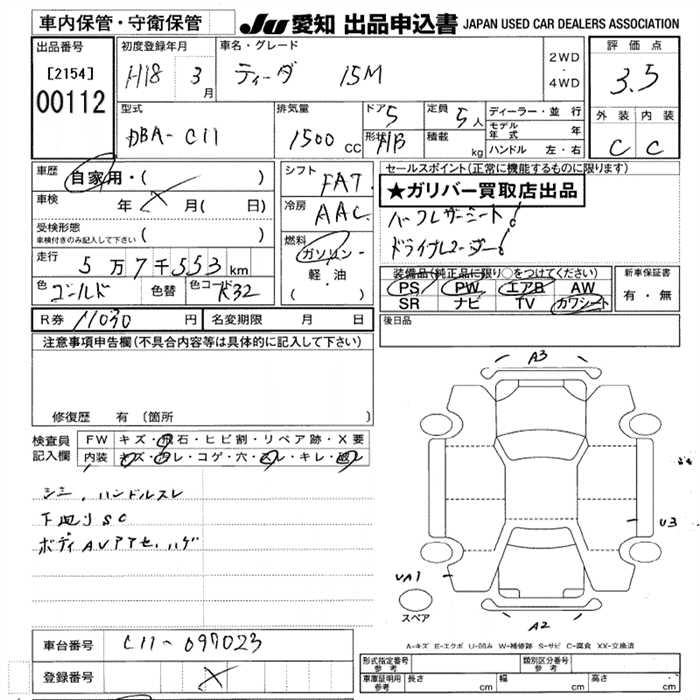 車内保管・守衛保管
JU 愛知 出品申込書 JAPAN USED CAR DEALERS ASSOCIATION
出品番号 初度登録年月 車名・グレード 評価点
[2154] H18 3月 ティーダ 15M 2WD・4WD 3.5
00112
型式 排気量 ドア 5 定員 5人 ディーラー・並行 外装 内装
DBA-C11 1500CC 形状 HB 積載 kg モデル年式 年 C C
ハンドル 左・右
車歴 自家用・( ) シフト FAT セールスポイント(正常に機能するものに限ります)
車検 年 月( 日) 冷房 AAC ★ガリバー買取店出品
受検形態 ( ) ハーフレザーシート!
車検付きのみ記入して下さい
燃料 ガソリン・軽油 ( ・ )
走行 5万7千553km
装備品(純正品に限り○をつけてください) 新車保証書
色 ゴールド 色替 色コード K32 PS PW エアB AW 有・無
SR ナビ TV カワシート
R券 11030円 名変期限 月 日 後日品
注意事項申告欄(不具合内容等は具体的に記入して下さい)
A3
修復歴 有(箇所
検査員 記入欄 FW キズ・飛石・ヒビ割・リペア跡・X要
内装 キズ・コゲ・穴・キレ・
シミ、ハンドルスレ
下廻りSC U3
ボディ
UA1
スペア
A2
A-キズ E-エクボ U-凹み W-補修跡 S-サビ C-腐食 XX-交換済
車台番号 C11-097023
登録番号 X
形式指定番号 参考 類別区分番号 参考
車庫証明用 参考 長さ cm 幅 cm 高さ cm